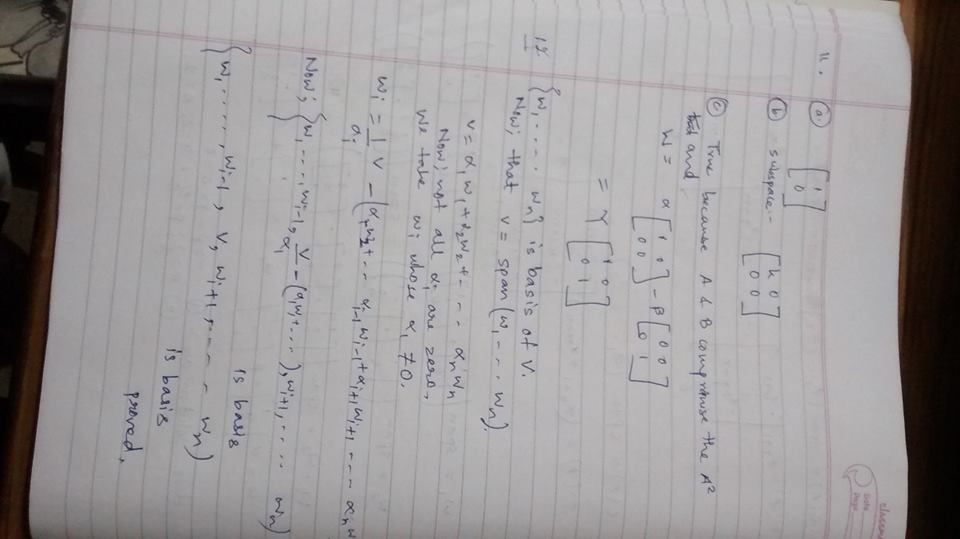 classmate
Date
Page
11. (a) [1 0]
(b) subspace - [k 0 0 0]
(c) True because A & B comprise the A²
and
W = α [1 0 0 0] - β [0 0 0 1]
= γ [1 0 0 1]
12 {w₁ ..... wₙ} is basis of V.
Now; that v = span (w₁ - - - wₙ).
v = α₁w₁ + α₂w₂ + - - - αₙwₙ
Now; not all αᵢ are zero,
We take wᵢ whose αᵢ ≠ 0.
wᵢ = 1/αᵢ v - (α₁w₂ + ... αᵢ₋₁wᵢ₋₁ + αᵢ₊₁wᵢ₊₁ ... αₙw
Now; {w₁, ..., wᵢ₋₁, v/αᵢ - (α₁w₁ + ...), wᵢ₊₁, .... wₙ)
is basis
{w₁ ....., wᵢ₋₁, v, wᵢ₊₁, - - - wₙ)
is basis
proved.